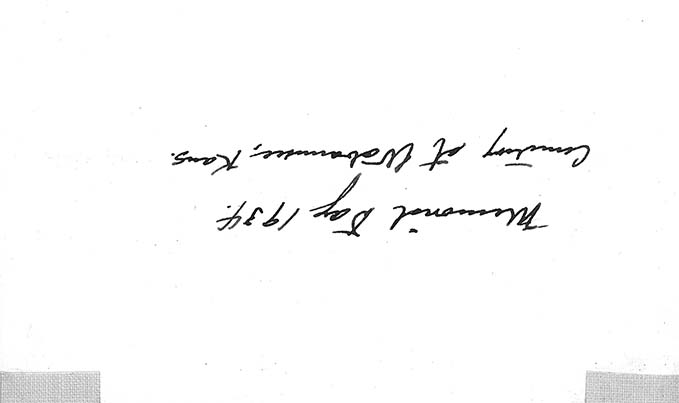 Memorial Day 1934.
Cemetery at Wabaunsee, Kans.